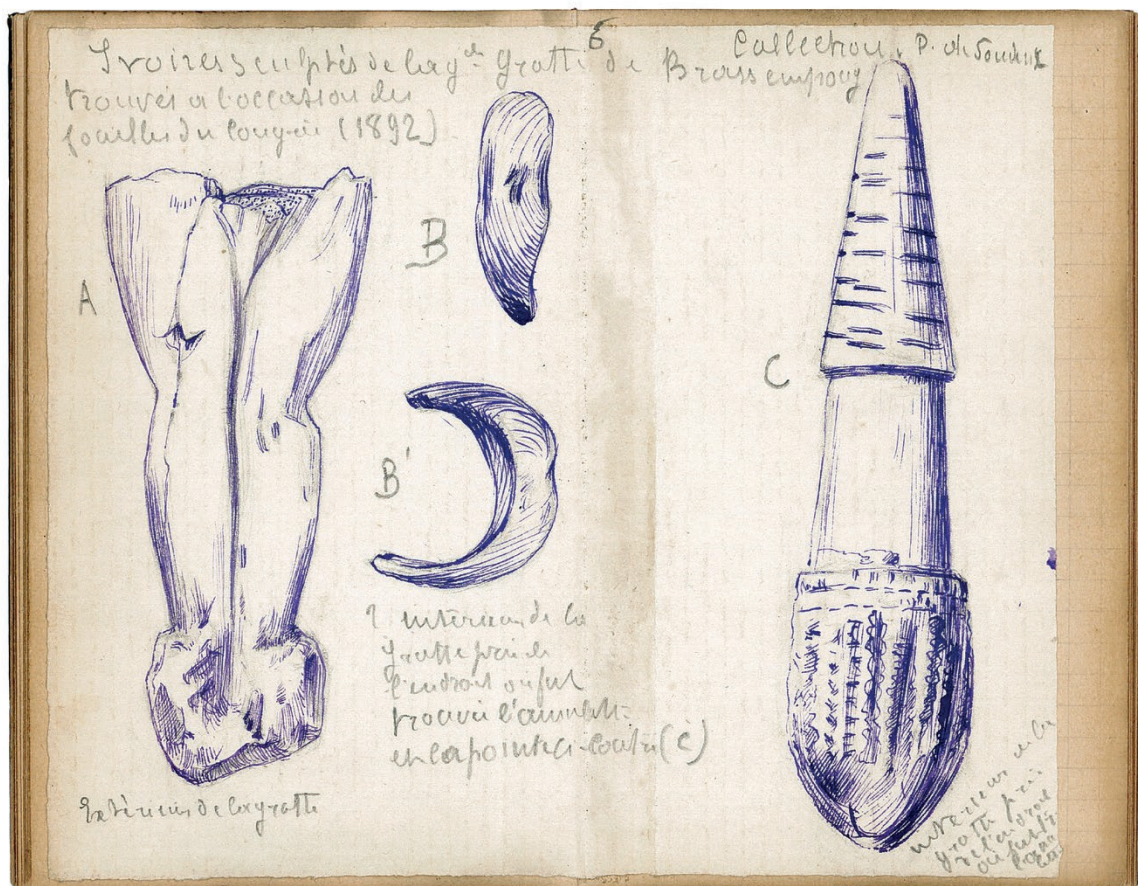 6
Ivoires sculptés de la gde Grotte de Brassempouy
trouvés a l'occasion des
fouilles du Congrès (1892)
Collection P. de
A
B
B'
C
intérieur de la
grotte près de
l'endroit où fut
trouvé
et la pointe ci-contre (C)
Extérieur de la grotte
intérieur de la
grotte près
de l'endroit
où fut